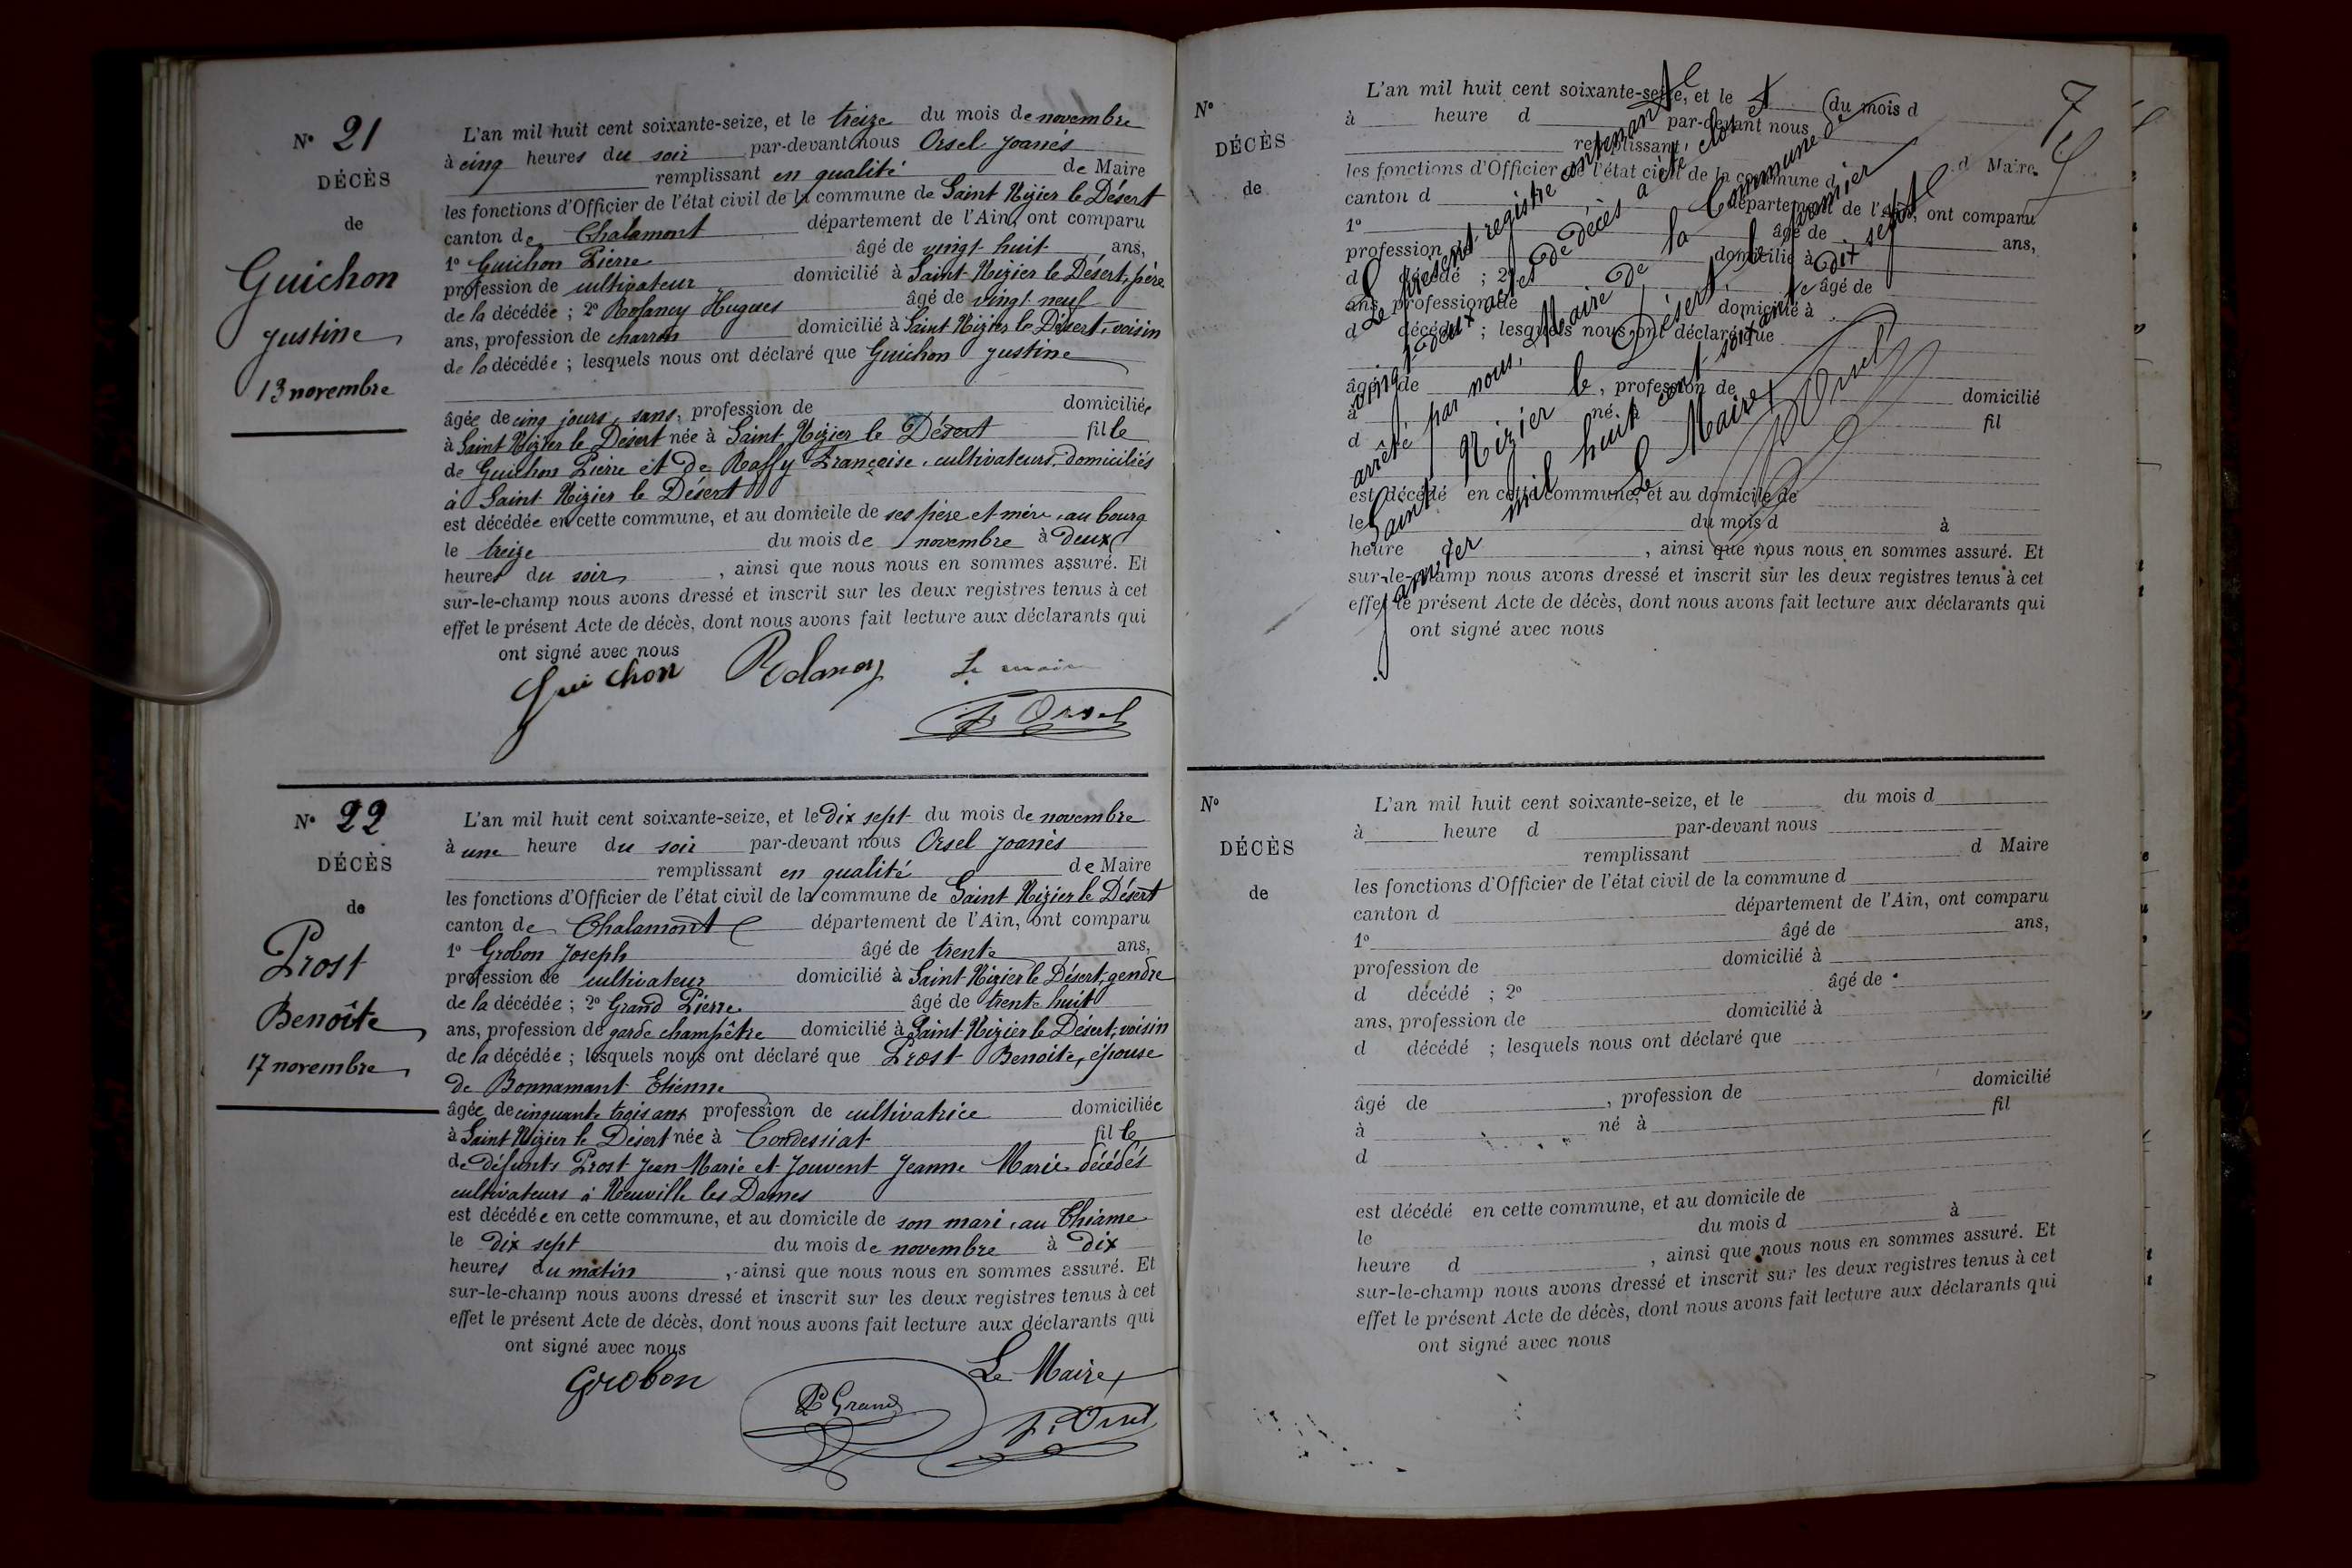 N° 21
DÉCÈS
de
Guichon
Justine
13 novembre
L'an mil huit cent soixante-seize, et le treize du mois de novembre
à cinq heures du soir par-devant nous Orsel Joanès
remplissant en qualité de Maire
les fonctions d'Officier de l'état civil de la commune de Saint Nizier le Désert
canton de Chalamont département de l'Ain, ont comparu
1° Guichon Pierre âgé de vingt huit ans,
profession de cultivateur domicilié à Saint Nizier le Désert, père
de la décédée ; 2° Rolancy Hugues âgé de vingt neuf
ans, profession de charron domicilié à Saint Nizier le Désert, voisin
de la décédée ; lesquels nous ont déclaré que Guichon Justine
âgée de cinq jours, sans, profession de domiciliée
à Saint Nizier le Désert née à Saint Nizier le Désert fille
de Guichon Pierre et de Raffy Françoise, cultivateurs, domiciliés
à Saint Nizier le Désert
est décédée en cette commune, et au domicile de ses père et mère, au bourg
le treize du mois de novembre à deux
heures du soir, ainsi que nous nous en sommes assuré. Et
sur-le-champ nous avons dressé et inscrit sur les deux registres tenus à cet
effet le présent Acte de décès, dont nous avons fait lecture aux déclarants qui
ont signé avec nous
Guichon Rolancy Le maire
J. Orsel
N° 22
DÉCÈS
de
Prost
Benoîte
17 novembre
L'an mil huit cent soixante-seize, et le dix sept du mois de novembre
à une heure du soir par-devant nous Orsel Joanès
remplissant en qualité de Maire
les fonctions d'Officier de l'état civil de la commune de Saint Nizier le Désert
canton de Chalamont département de l'Ain, ont comparu
1° Grobon Joseph âgé de trente ans,
profession de cultivateur domicilié à Saint Nizier le Désert, gendre
de la décédée ; 2° Grand Pierre âgé de trente huit
ans, profession de garde champêtre domicilié à Saint Nizier le Désert, voisin
de la décédée ; lesquels nous ont déclaré que Prost Benoîte, épouse
de Bonnamant Etienne
âgée de cinquante trois ans profession de cultivatrice domiciliée
à Saint Nizier le Désert née à Condessiat fille
de défunts Prost Jean Marie et Jouvent Jeanne Marie décédés
cultivateurs à Neuville les Dames
est décédée en cette commune, et au domicile de son mari, au Thiame
le dix sept du mois de novembre à dix
heures du matin, ainsi que nous nous en sommes assuré. Et
sur-le-champ nous avons dressé et inscrit sur les deux registres tenus à cet
effet le présent Acte de décès, dont nous avons fait lecture aux déclarants qui
ont signé avec nous
Grobon Le Maire
P. Grand J. Orsel
7
N°
DÉCÈS
de
L'an mil huit cent soixante-seize, et le du mois d
à heure d par-devant nous
remplissant d Maire
les fonctions d'Officier de l'état civil de la commune d
canton d département de l'Ain, ont comparu
1° âgé de ans,
profession de domicilié à
d décédé ; 2° âgé de
ans, profession de domicilié à
d décédé ; lesquels nous ont déclaré que
âgé de , profession de domicilié
à né à fil
d
est décédé en cette commune, et au domicile de
le du mois d à
heure , ainsi que nous nous en sommes assuré. Et
sur-le-champ nous avons dressé et inscrit sur les deux registres tenus à cet
effet le présent Acte de décès, dont nous avons fait lecture aux déclarants qui
ont signé avec nous
Le présent registre contenant
vingt-deux actes de décès a été clos et
arrêté par nous, Maire de la Commune de
Saint Nizier le Désert, le premier
janvier mil huit cent soixante dix sept
Le Maire
J. Orsel
N°
DÉCÈS
de
L'an mil huit cent soixante-seize, et le du mois d
à heure d par-devant nous
remplissant d Maire
les fonctions d'Officier de l'état civil de la commune d
canton d département de l'Ain, ont comparu
1° âgé de ans,
profession de domicilié à
d décédé ; 2° âgé de
ans, profession de domicilié à
d décédé ; lesquels nous ont déclaré que
âgé de , profession de domicilié
à né à fil
d
est décédé en cette commune, et au domicile de
le du mois d à
heure d , ainsi que nous nous en sommes assuré. Et
sur-le-champ nous avons dressé et inscrit sur les deux registres tenus à cet
effet le présent Acte de décès, dont nous avons fait lecture aux déclarants qui
ont signé avec nous